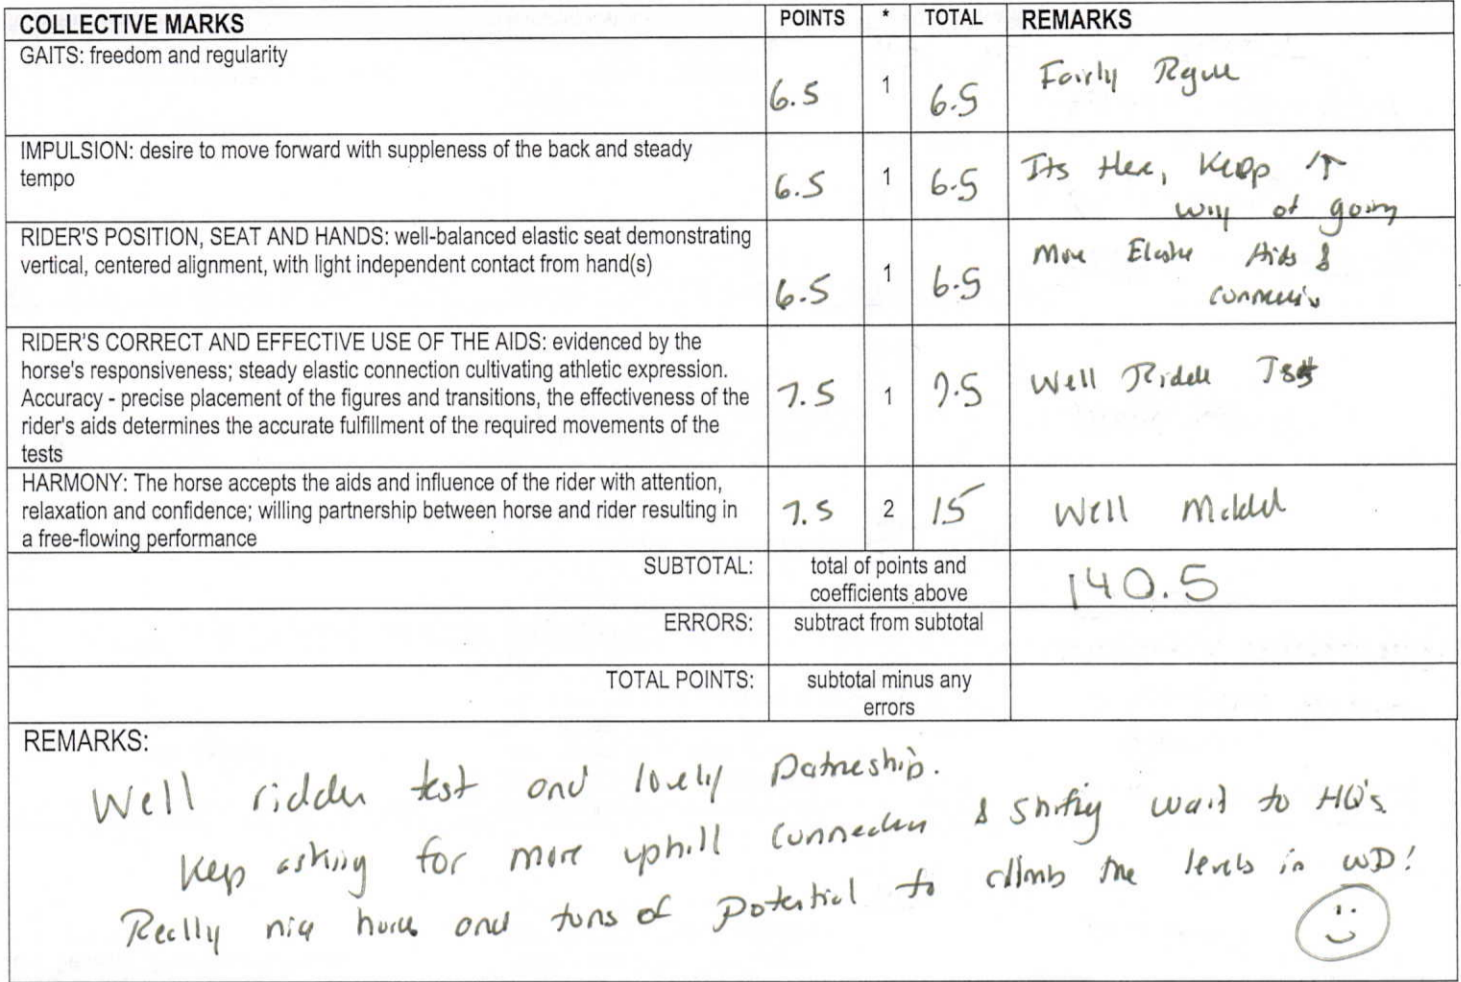 COLLECTIVE MARKS POINTS * TOTAL REMARKS
GAITS: freedom and regularity
6.5 1 6.5 Fairly
IMPULSION: desire to move forward with suppleness of the back and steady
tempo
6.5 1 6.5 Its Here, Keep ↑
way of going
RIDER'S POSITION, SEAT AND HANDS: well-balanced elastic seat demonstrating
vertical, centered alignment, with light independent contact from hand(s)
6.5 1 6.5 More Elastic Aids &
connection
RIDER'S CORRECT AND EFFECTIVE USE OF THE AIDS: evidenced by the
horse's responsiveness; steady elastic connection cultivating athletic expression.
Accuracy - precise placement of the figures and transitions, the effectiveness of the
rider's aids determines the accurate fulfillment of the required movements of the
tests
7.5 1 7.5 Well Ridden Test
HARMONY: The horse accepts the aids and influence of the rider with attention,
relaxation and confidence; willing partnership between horse and rider resulting in
a free-flowing performance
7.5 2 15 Well
SUBTOTAL: total of points and
coefficients above
140.5
ERRORS: subtract from subtotal
TOTAL POINTS: subtotal minus any
errors
REMARKS:
Well ridden test and lovely Patneship.
Keep asking for more uphill connection & shifting to HQ's
Really nice horse and tons of potential to climb the levels in WD!